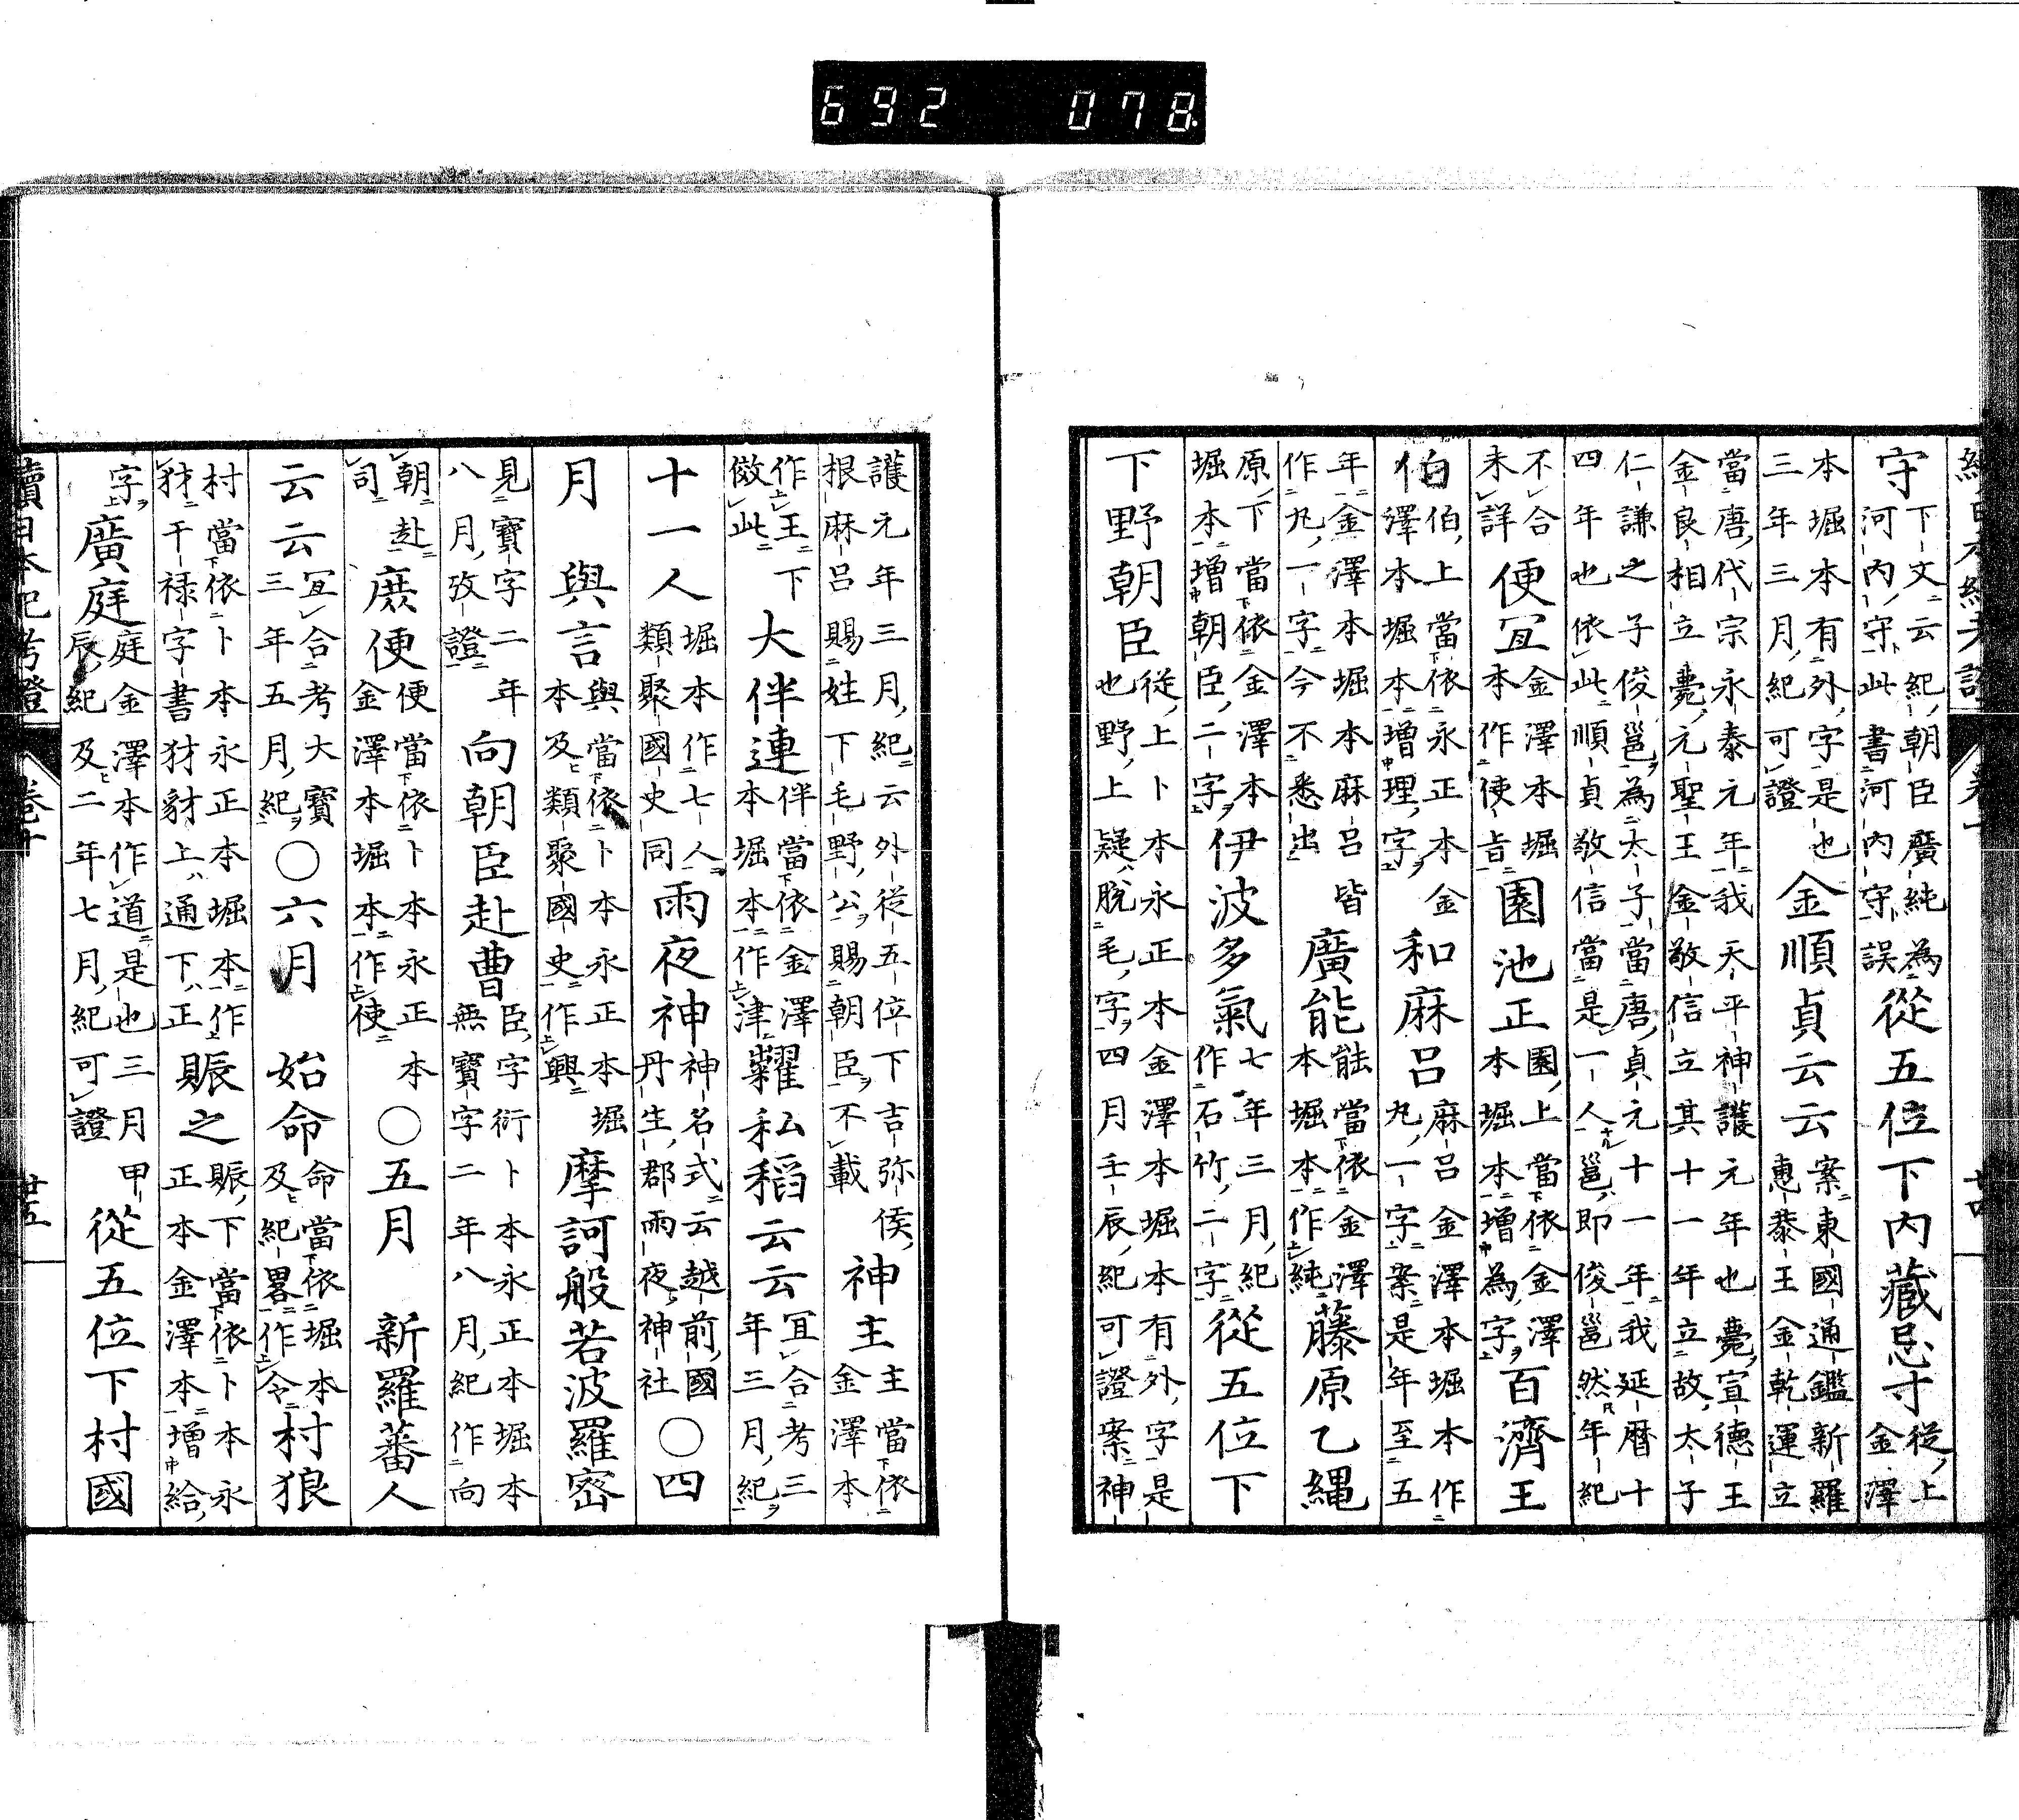 守下文云紀朝臣廣純為河內守此書河內守誤從五位下內藏忌寸從上金澤
本堀本有外字是也三年三月紀可證金順貞云云案東國通鑑新羅惠恭王金乾運立
當唐代宗永泰元年我天平神護元年也薨宣德王金良相立薨元聖王金敬信立其十一年立故太子
仁謙之子俊邕為太子當唐貞元十一年我延曆十四年也依此順貞敬信當是一人邕即俊邕然年紀
不合未詳便宜金澤本堀本作使旨園池正園上當依金澤本堀本增為字百濟王
伯伯上當依永正本金澤本堀本增理字和麻呂麻呂金澤本堀本作丸一字案是年至五
年金澤本堀本麻呂皆作丸一字今不悉出廣能能當依金澤本堀本作純藤原乙縄
原下當依金澤本堀本增朝臣二字伊波多氣七年三月紀作石竹二字從五位下
下野朝臣從上卜本永正本金澤本堀本有外字是也野上疑脫毛字四月壬辰紀可證案神
護元年三月紀云外從五位下吉弥侯根麻呂賜姓下毛野公賜朝臣不載神主主當依金澤本
作王下儌此大伴連伴當依金澤本堀本作津糶私稻云云宜合考三年三月紀
十一人堀本作七人類聚國史同雨夜神神名式云越前國丹生郡雨夜神社〇四
月 與言與當依卜本永正本堀本及類聚國史作興摩訶般若波羅密
見寶字二年八月攷證向朝臣赴曹臣字衍卜本永正本堀本無寶字二年八月紀作向
朝赴司庶便便當依卜本永正本金澤本堀本作使〇五月 新羅蕃人
云云宜合考大寶三年五月紀〇六月 始命命當依堀本及紀畧作令村狼
村當依卜本永正本堀本作犲干禄字書犲豺上通下正賑之賑下當依卜本永正本金澤本增給
字廣庭庭金澤本作道是也三月甲辰紀及二年七月紀可證從五位下村國
續日本紀考證 卷十 廿五
692 078